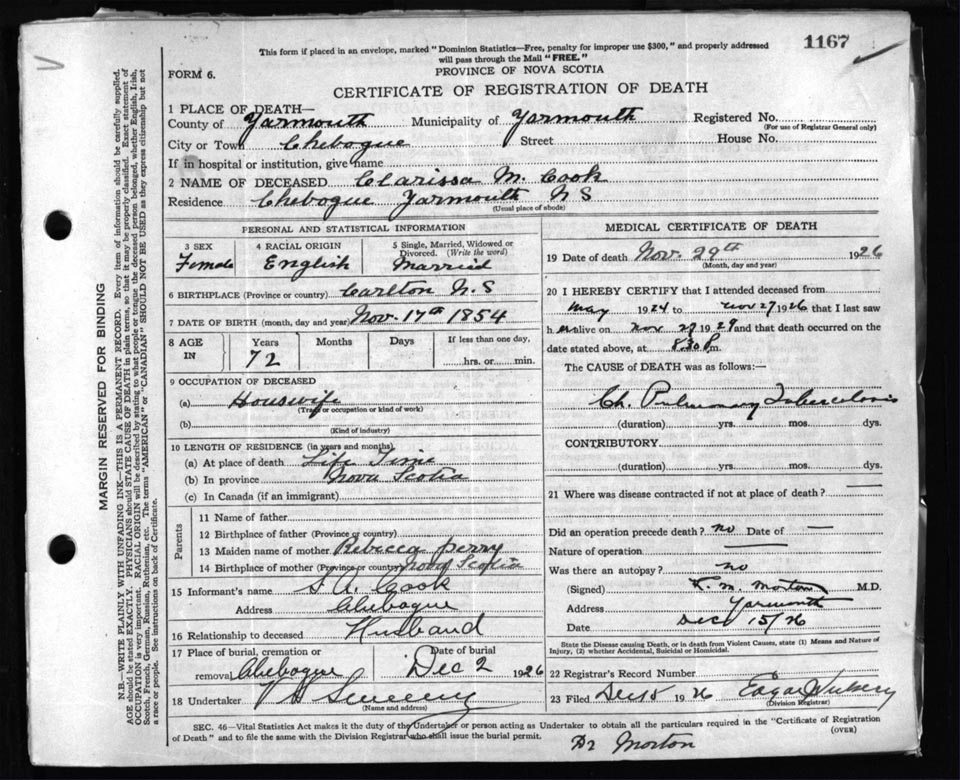 1167
This form if placed in an envelope, marked "Dominion Statistics—Free, penalty for improper use $300," and properly addressed
will pass through the Mail "FREE."
FORM 6.
PROVINCE OF NOVA SCOTIA
CERTIFICATE OF REGISTRATION OF DEATH
1 PLACE OF DEATH—
County of Yarmouth Municipality of Yarmouth Registered No.
(For use of Registrar General only)
City or Town Chebogue Street House No.
If in hospital or institution, give name
2 NAME OF DECEASED Clarissa M. Cook
Residence Chebogue Yarmouth N S
(Usual place of abode)
PERSONAL AND STATISTICAL INFORMATION
3 SEX 4 RACIAL ORIGIN 5 Single, Married, Widowed or
Divorced. (Write the word)
Female English Married
6 BIRTHPLACE (Province or country) Carlton N.S
7 DATE OF BIRTH (month, day and year) Nov. 17th 1854
8 AGE IN Years Months Days If less than one day,
72 hrs. or min.
9 OCCUPATION OF DECEASED
(a) Houswife
(Trade or occupation or kind of work)
(b)
(Kind of industry)
10 LENGTH OF RESIDENCE (in years and months)
(a) At place of death Life Time
(b) In province Nova Scotia
(c) In Canada (if an immigrant)
Parents
11 Name of father
12 Birthplace of father (Province or country)
13 Maiden name of mother Rebecca Perry
14 Birthplace of mother (Province or country) Nova Scotia
15 Informant's name S A. Cook
Address Chebogue
16 Relationship to deceased Husband
17 Place of burial, cremation or Date of burial
removal Chebogue Dec 2 1926
18 Undertaker V Sweeny
(Name and address)
MEDICAL CERTIFICATE OF DEATH
19 Date of death Nov. 29th 1926
(Month, day and year)
20 I HEREBY CERTIFY that I attended deceased from
May 1924 to Nov 27 1926 that I last saw
h er alive on Nov 27 1927 and that death occurred on the
date stated above, at 8.30 P m.
The CAUSE of DEATH was as follows:—
Ch. Pulmonary Tuberculosis
(duration) yrs. mos. dys.
CONTRIBUTORY
(duration) yrs. mos. dys.
21 Where was disease contracted if not at place of death? —
Did an operation precede death? no Date of —
Nature of operation —
Was there an autopsy? no
(Signed) M. Morton M.D.
Address Yarmouth
Date Dec 15/26
State the Disease causing Death, or in death from Violent Causes, state (1) Means and Nature of
Injury, (2) whether Accidental, Suicidal or Homicidal.
22 Registrar's Record Number
23 Filed Dec 15 1926 Edgar
(Division Registrar)
SEC. 46—Vital Statistics Act makes it the duty of the Undertaker or person acting as Undertaker to obtain all the particulars required in the "Certificate of Registration
of Death" and to file the same with the Division Registrar who shall issue the burial permit.
(OVER)
Dr Morton
MARGIN RESERVED FOR BINDING
N.B.—WRITE PLAINLY WITH UNFADING INK—THIS IS A PERMANENT RECORD. Every item of information should be carefully supplied.
AGE should be stated EXACTLY. PHYSICIANS should STATE CAUSE OF DEATH in plain terms, so that it may be properly classified. Exact statement of
OCCUPATION is very important. RACIAL ORIGIN will be described by stating to what people or tongue the deceased person belonged, whether English, Irish,
Scotch, French, German, Russian, Ruthenian, etc. The terms "AMERICAN" or "CANADIAN" SHOULD NOT BE USED as they express citizenship but not
a race or people. See instructions on back of Certificate.